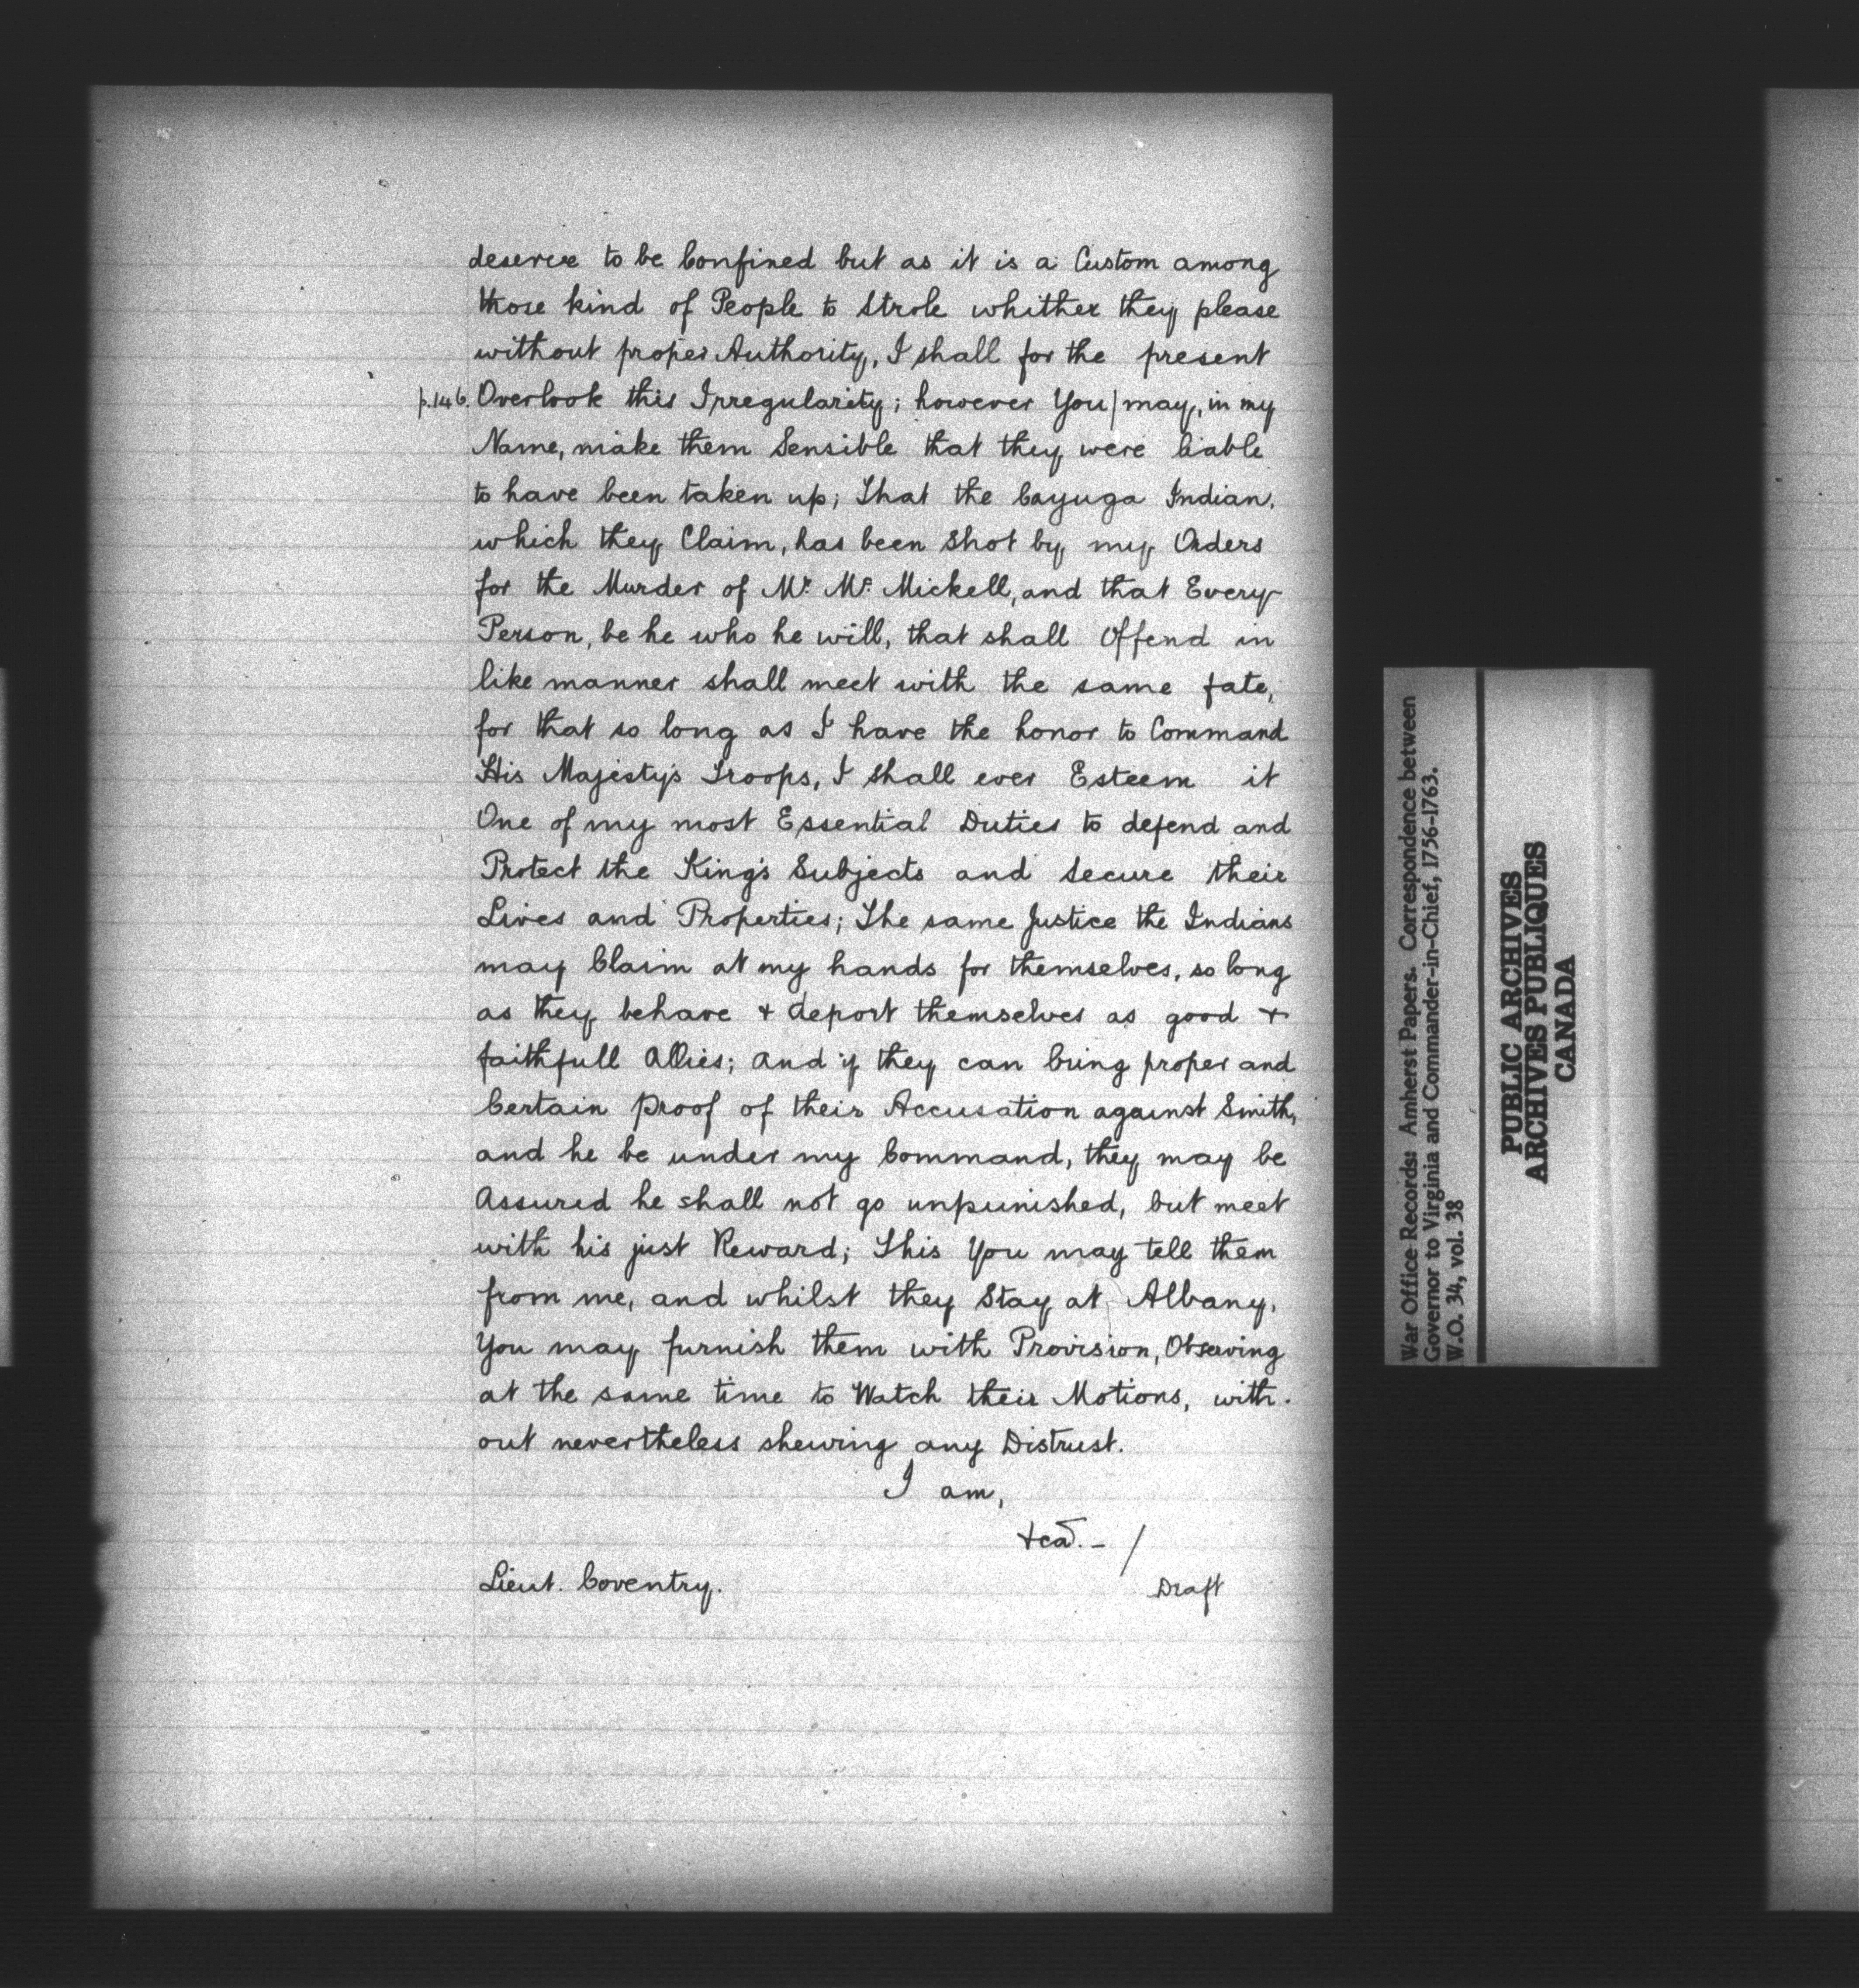 deserve to be Confined but as it is a Custom among
those kind of People to Strole whither they please
without proper Authority, I shall for the present
p.146. Overlook this Irregularity; however You/may, in my
Name, make them Sensible that they were liable
to have been taken up; That the Cayuga Indian,
which they Claim, has been Shot by my Orders
for the Murder of Mr. Mc. Mickell, and that Every
Person, be he who he will, that shall Offend in
like manner shall meet with the same fate,
for that so long as I have the honor to Command
His Majesty's Troops, I shall ever Esteem it
One of my most Essential Duties to defend and
Protect the King's Subjects and Secure their
Lives and Properties; The same Justice the Indians
may Claim at my hands for themselves, so long
as they behave & deport themselves as good &
faithfull Allies; and if they can bring proper and
Certain proof of their Accusation against Smith,
and he be under my Command, they may be
Assured he shall not go unpunished, but meet
with his just Reward; This You may tell them
from me, and whilst they Stay at Albany,
You may furnish them with Provision, Observing
at the same time to Watch their Motions, with-
out nevertheless shewing any Distrust.
I am,
&ca. - /
Lieut. Coventry.
Draft
War Office Records: Amherst Papers. Correspondence between
Governor to Virginia and Commander-in-Chief, 1756-1763.
W.O. 34, vol. 38
PUBLIC ARCHIVES
ARCHIVES PUBLIQUES
CANADA